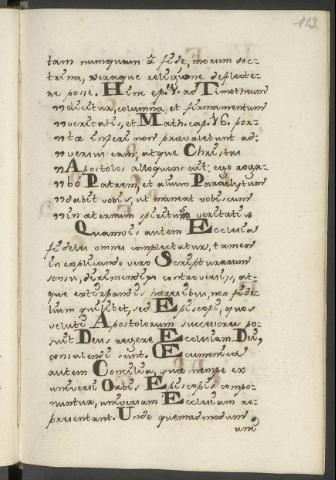 113
tam numquam à fide, morum doc-
trina, veraque religione deflecte-
re posse. Hinc ep. V. ad Timotheum
dicitur, columna et firmamentum
veritatis, et Math. cap. V6. por-
tæ inferi non prævalebunt ad-
versus eam; atque Christus
Apostolos alloquens ait; ego roga-
bo Patrem, et alium Paraclytum
dabit vobis, ut maneat vobiscum
in æternum spiritum veritatis
Quamvis autem Ecclesia
fideles omnes complectatur, tamen
in explicando vero Scripturarum
sensu, dirimendis controversiis, at-
que extirpandis hæresibus, non fide-
lium quilibet, sed Episcopi, quos
veluti Apostolorum successores po-
suit Deus regere Ecclesiam Dei,
consulendi sunt. Œcumenica
autem Concilia, quæ nempe ex
universi Orbis Episcopis compo-
nuntur, universam Ecclesiam re-
præsentant. Unde quemadmodum
uni